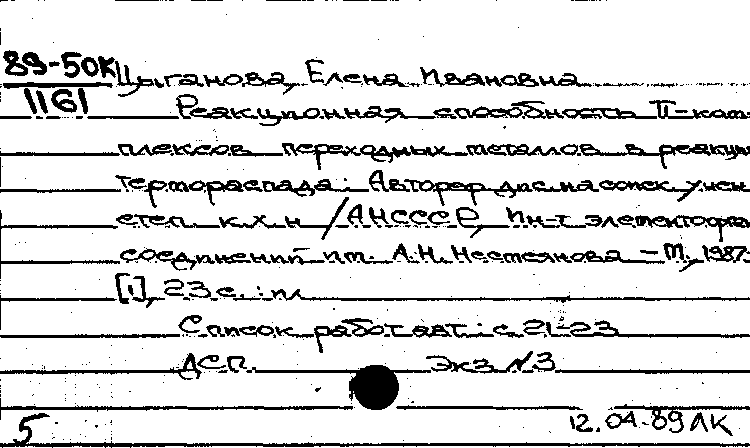 89-50К Цыганова, Елена Ивановна
1161 Реакционная способность П-ком-
плексов переходных металлов в реакци
термораспада: Автореф дис. на соиск учен
степ. к.х.н / АН СССР, Ин-т элементоорга
соединений им. А.Н. Несмеянова - М., 1987.
[1], 23 с. : ил
Список работ авт.: с 21-23
ДСП. Экз N 3
5 12.04.89 ЛК